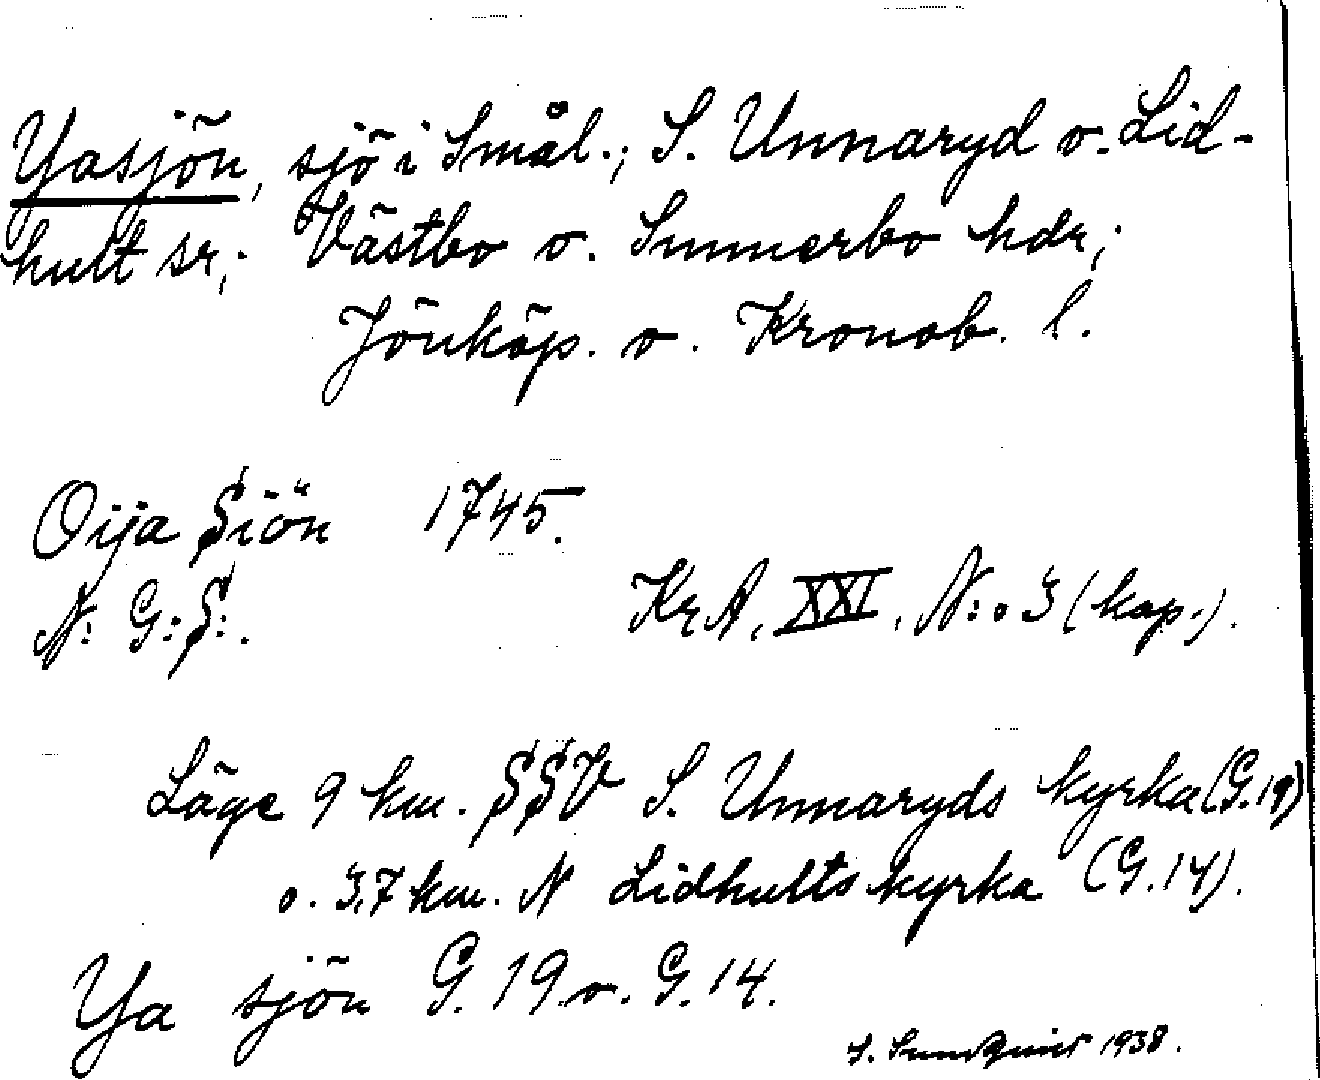 Yasjön, sjö i Smål.; S. Unnaryd o. Lid-
hult sr,; Västbo o. Sunnerbo hdr,;
Jönköp. o. Kronob. l.
Oija Siön 1745.
N: G:S:.
KrA, XXI, N:o 3 (kap.).
Läge 9 km. SSV S. Unnaryds kyrka (G.19)
o. 3,7 km. N Lidhults kyrka (G.14).
Ya sjön G. 19 o. G. 14.
Sundquist 1938.